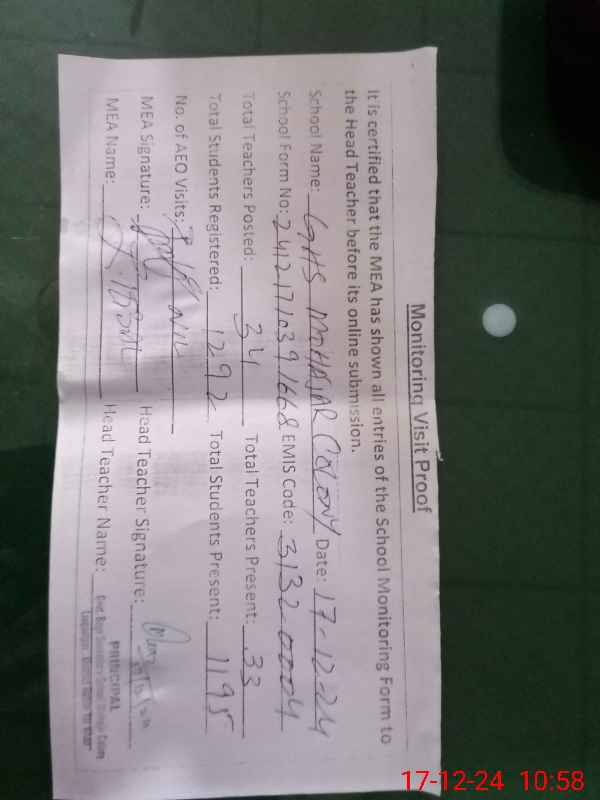 Monitoring Visit Proof
It is certified that the MEA has shown all entries of the School Monitoring Form to
the Head Teacher before its online submission.
School Name: GHS MOHAJAR COLONY Date: 17-12-24
School Form No: 24121710391668 EMIS Code: 31320004
Total Teachers Posted: 34 Total Teachers Present: 33
Total Students Registered: 1292 Total Students Present: 1195
No. of AEO Visits: NIL
MEA Signature: Head Teacher Signature:
MEA Name: Head Teacher Name:
PRINCIPAL
17-12-24 10:58